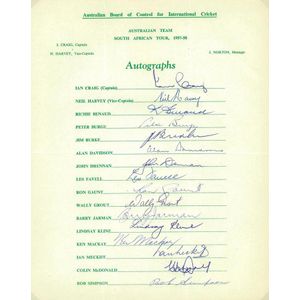 Australian Board of Control for International Cricket
AUSTRALIAN TEAM
SOUTH AFRICAN TOUR, 1957-58
I. CRAIG, Captain
N. HARVEY, Vice-Captain
J. NORTON, Manager
Autographs
IAN CRAIG (Captain)
NEIL HARVEY (Vice-Captain) Neil Harvey
RICHIE BENAUD R Benaud
PETER BURGE Peter Burge
JIM BURKE
ALAN DAVIDSON Alan Davidson
JOHN DRENNAN John Drennan
LES FAVELL Les Favell
RON GAUNT Ron Gaunt
WALLY GROUT Wally Grout
BARRY JARMAN Barry Jarman
LINDSAY KLINE Lindsay Kline
KEN MACKAY Ken Mackay
IAN MECKIFF Ian Meckiff
COLIN McDONALD
BOB SIMPSON Bob Simpson